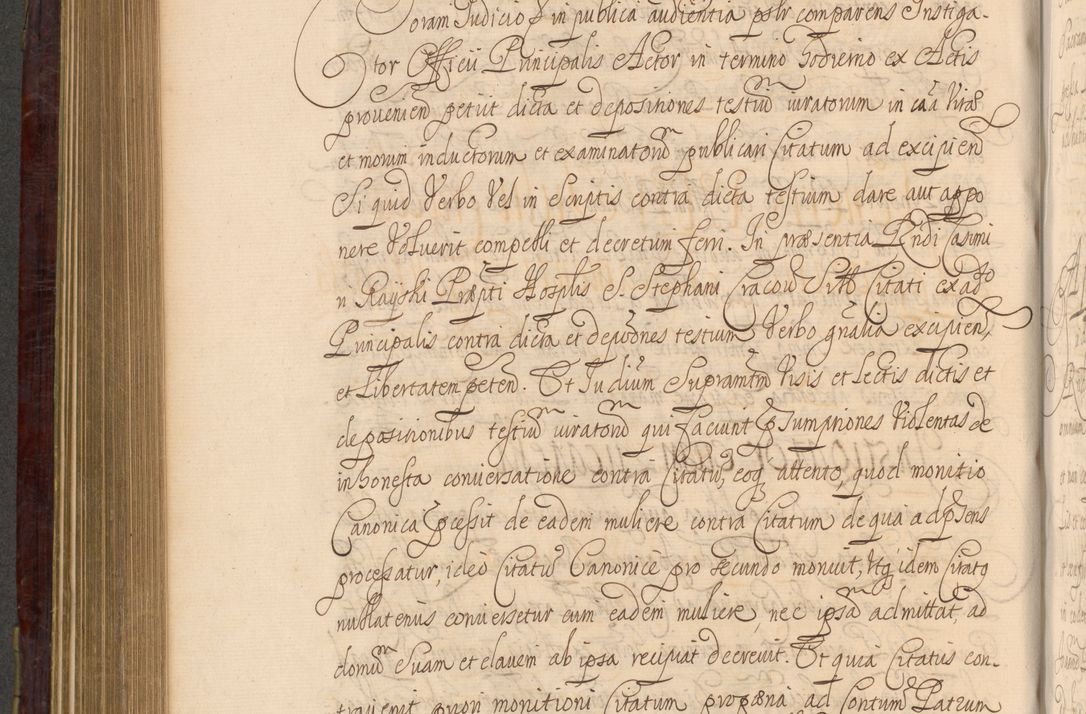 Coram Judicio et in publica audientia pslr comparens Instiga-
tor Officii Principalis Actor in termino hodierno ex Actis
provenien petiit dicta et depositiones testiū iuratorum in caa Vitæ
et morum inductorum et examinatorū publicari Citatum ad excipien
Si quid Verbo Vel in Scriptis contra dicta testium dare aut appo
nere Voluerit compelli et decretum ferri. In præsentia Rndi Casimi
ri Rayski Præpti Hosplis S. Stephani Cracov Citati ex ad
Principalis contra dicta et depoones testium Verbo gnalia excipien,
et Libertatem peten. Et Judicium Supramtm Visis et Lectis dictis et
depositionibus testiū iuratorū qui faciunt psumptiones Violentas de
inhonesta conversatione contra Citatū, eoq attento, quod monitio
Canonica pcessit de eadem muliere contra Citatum de qua ad psens
processatur, ideo Citatū Canonice pro secundo monuit, Utq idem Citatq
nullatenus conversetur cum eadem muliere, nec ipsa admittat, ad
domū Suam et clavem ab ipsa recipiat decrevit. Et quia Citatus con-
travenit priori monitioni Citatum pro pæna ad Contum Patrum